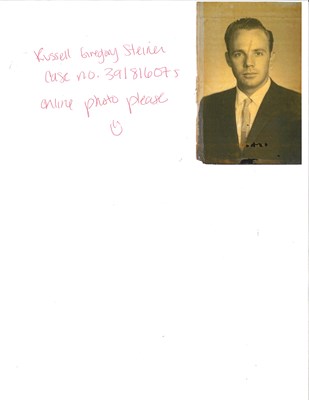 Russell Gregory Steiner
case no. 39181607s
online photo please